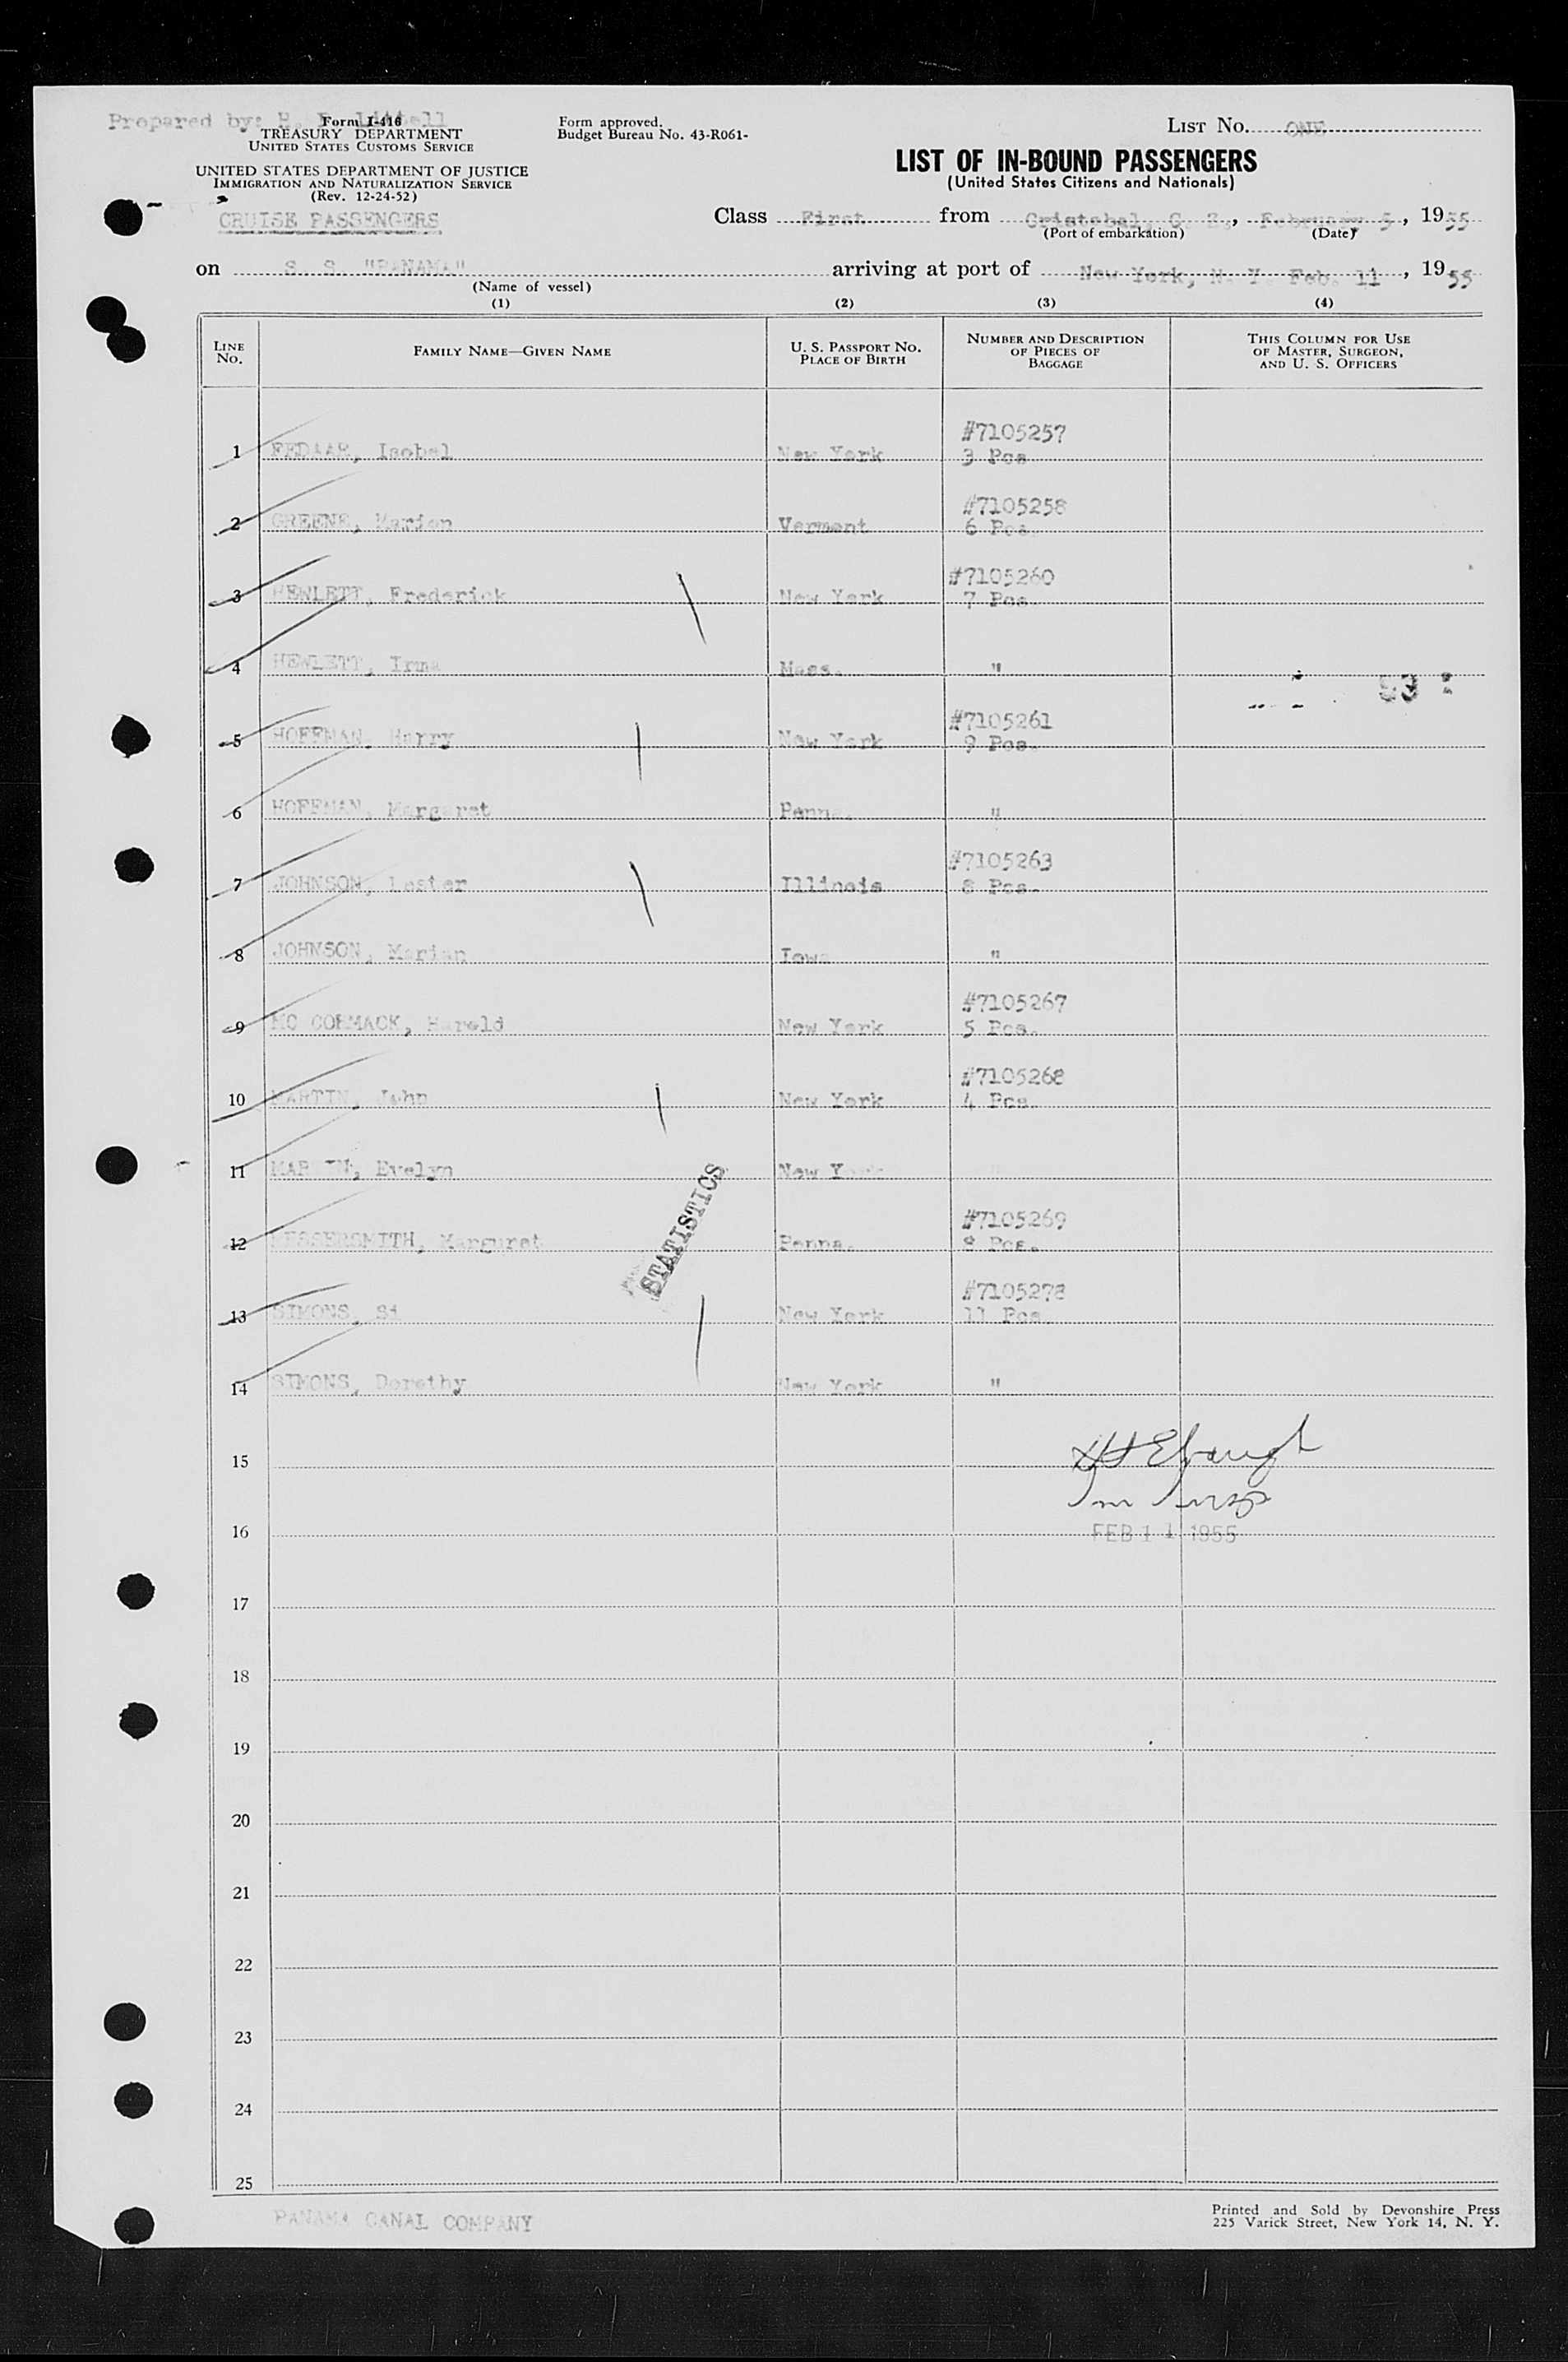 Prepared by: H.
Form I-418
TREASURY DEPARTMENT
UNITED STATES CUSTOMS SERVICE
UNITED STATES DEPARTMENT OF JUSTICE
IMMIGRATION AND NATURALIZATION SERVICE
(Rev. 12-24-52)
Form approved.
Budget Bureau No. 43-R061-
LIST No. ONE
LIST OF IN-BOUND PASSENGERS
(United States Citizens and Nationals)
CRUISE PASSENGERS
Class First from Cristobal, C. Z., February 5, 1955
(Port of embarkation) (Date)
on S. S. "PANAMA" arriving at port of New York, N. Y. Feb. 11, 1955
(Name of vessel)
(1) (2) (3) (4)
LINE No. FAMILY NAME—GIVEN NAME U. S. PASSPORT No. PLACE OF BIRTH NUMBER AND DESCRIPTION OF PIECES OF BAGGAGE THIS COLUMN FOR USE OF MASTER, SURGEON, AND U. S. OFFICERS
#7105257
1 Isobel New York 3 Pcs
#7105258
2 GREENE, Marion Vermont 6 Pcs.
#7105260
3 HEWLETT, Frederick New York 7 Pcs.
4 HEWLETT, Irma Mass. "
#7105261
5 HOFFMAN, Harry New York 9 Pcs.
6 HOFFMAN, Margaret Penna. "
#7105263
7 JOHNSON, Lester Illinois 8 Pcs.
8 JOHNSON, Marian Iowa "
#7105267
9 MC CORMACK, Harold New York 5 Pcs.
#7105268
10 MARTIN, John New York 4 Pcs.
11 MARTIN, Evelyn New York
#7105269
12 MESSERSMITH, Margaret Penna. 8 Pcs.
STATISTICS
#7105278
13 SIMONS, Si New York 11 Pcs.
14 SIMONS, Dorothy New York "
15
16 FEB 11 1955
17
18
19
20
21
22
23
24
25
PANAMA CANAL COMPANY
Printed and Sold by Devonshire Press
225 Varick Street, New York 14, N. Y.